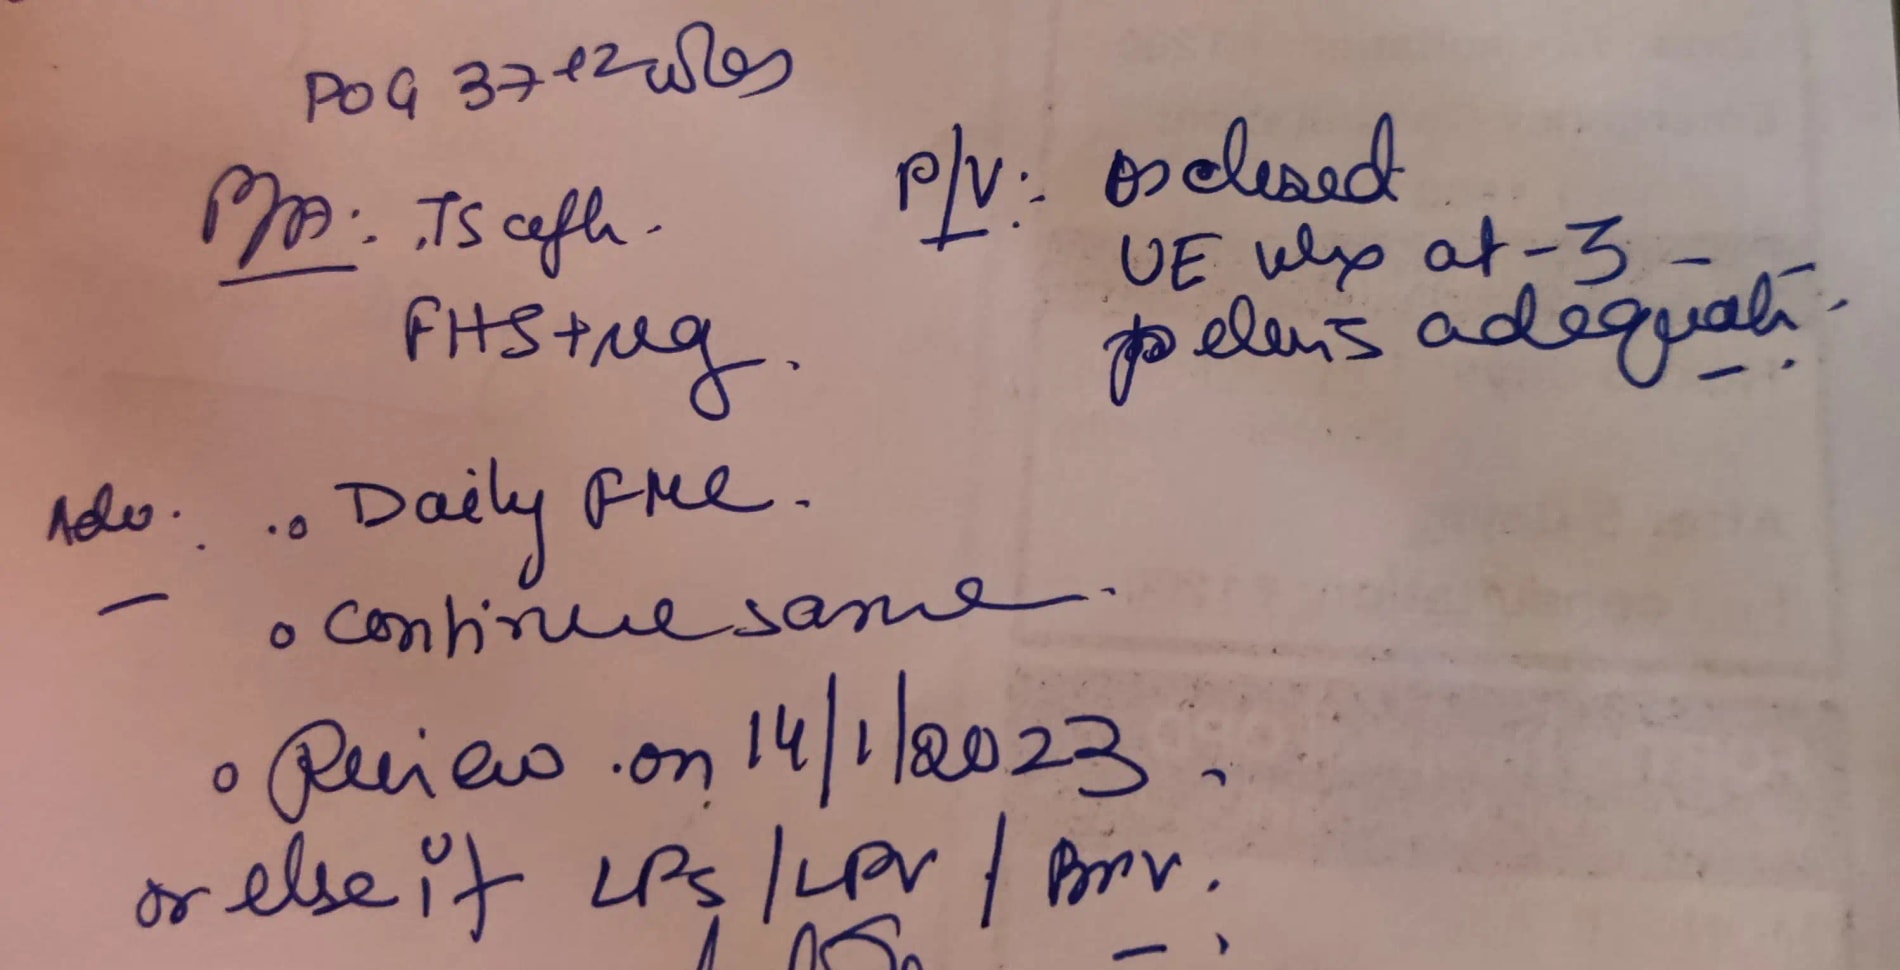 POG 37+2 wks
P/A: TS ceph.
FHS + reg.
P/V: os closed
UE Vtx at -3
pelvis adequate.
Adv: Daily FMC.
continue same.
Review on 14/1/2023.
or else if LPs / LPV /